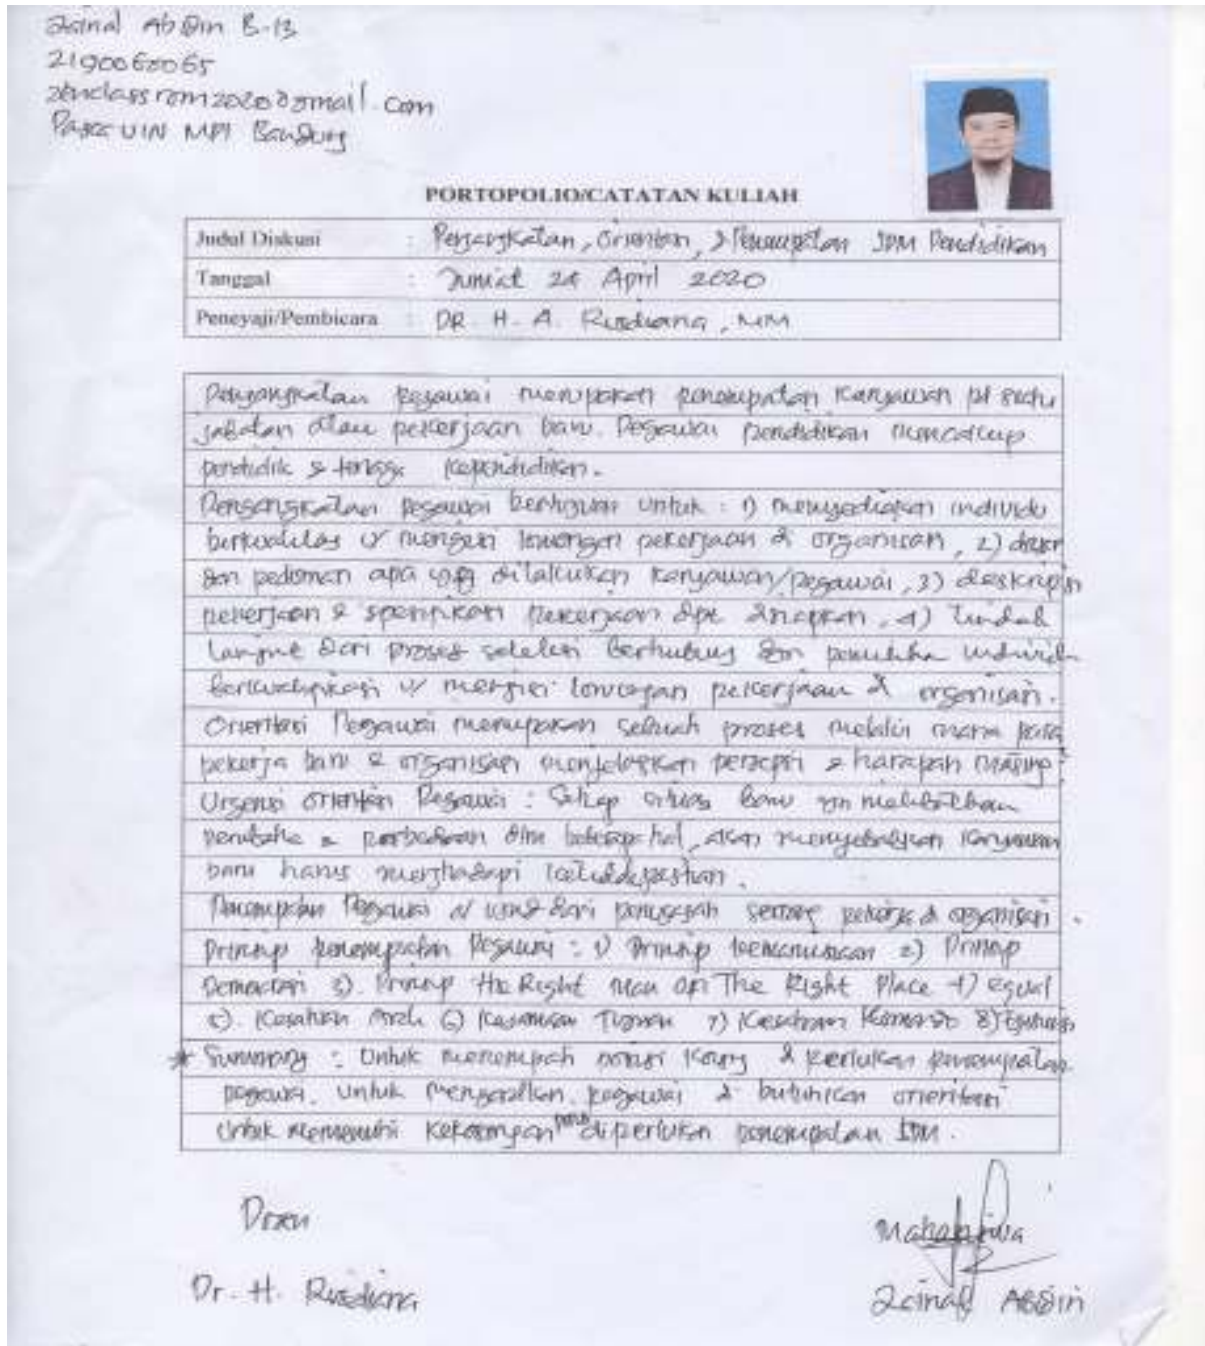 Zainal Abidin B-13
2190060065
zenclassrom2020@gmail.com
Pasca UIN MPI Bandung
PORTOPOLIO/CATATAN KULIAH
Judul Diskusi : Pengangkatan, Orientasi, & Penempatan SDM Pendidikan
Tanggal : Jumat 24 April 2020
Peneyaji/Pembicara : DR. H. A. Rusdiana, MM
Pengangkatan pegawai merupakan penempatan karyawan pd suatu
jabatan atau pekerjaan baru. Pegawai pendidikan mencakup
pendidik & tenaga kependidikan.
Pengangkatan pegawai bertujuan untuk : 1) menyediakan individu
berkualitas u/ mengisi lowongan pekerjaan di organisasi, 2)
dgn pedoman apa yg dilakukan karyawan/pegawai, 3) deskripsi
pekerjaan & spesifikasi pekerjaan dpt , 4) tindak
lanjut dari proses seleksi berhubung dgn individu
u/ mengisi lowongan pekerjaan di organisasi.
Orientasi Pegawai merupakan sebuah proses melalui mana para
pekerja baru & organisasi persepsi & harapan masing2
Urgensi orientasi Pegawai : Setiap situasi baru yn melibatkan
& perbedaan dlm beberapa hal, akan menyebabkan karyawan
baru harus menghadapi ketidakpastian.
Penempatan Pegawai dari penugasan seorang pekerja di organisasi.
Prinsip penempatan Pegawai : 1) Prinsip kemanusiaan 2) Prinsip
Demokrasi 3). Prinsip the Right Man on The Right Place 4) equal
5). Kesatuan Arah 6) Kesatuan Tujuan 7) Kesatuan Komando 8)
* Summary : Untuk posisi kosong di perlukan penempatan
pegawai. Untuk pegawai di butuhkan orientasi
Untuk memenuhi diperlukan penempatan SDM.
Dosen
Mahasiswa
Dr. H. Rusdiana
Zainal Abidin